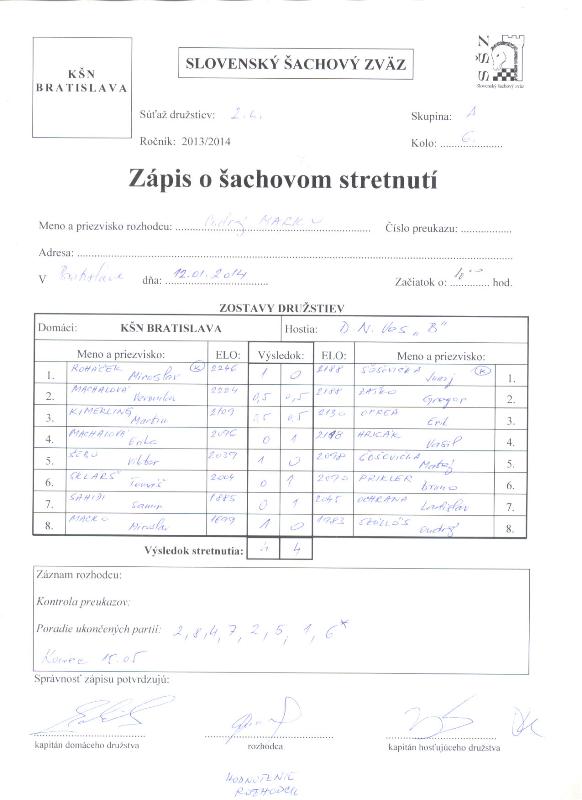 KŠN
BRATISLAVA
SLOVENSKÝ ŠACHOVÝ ZVÄZ
SŠN
Slovenský šachový zväz
Súťaž družstiev: 2.L.
Skupina: A
Ročník: 2013/2014
Kolo: 6.
Zápis o šachovom stretnutí
Meno a priezvisko rozhodcu: Ondrej MARKO Číslo preukazu:
Adresa:
V Bratislave dňa: 12.01.2014 Začiatok o: 10 00 hod.
ZOSTAVY DRUŽSTIEV
Domáci: KŠN BRATISLAVA Hostia: D. N. Ves „B"
Meno a priezvisko: ELO: Výsledok: ELO: Meno a priezvisko:
1. ROHÁČEK Miroslav K 2246 1 0 2188 Juraj K 1.
2. MACHALOVÁ Veronika 2224 0,5 0,5 2188 Gregor 2.
3. KIMERLING Martin 2109 0,5 0,5 2130 OPREA Erik 3.
4. MACHALOVÁ Erika 2096 0 1 HRICÁK Vasil 4.
5. Viktor 1 0 Matej 5.
6. SKLÁRŠ Tomáš 2004 0 1 2070 PRIKLER Bruno 6.
7. SAHIDI Samir 1885 0 1 2045 OCHRANA Ladislav 7.
8. MACKO Miroslav 1 0 1983 SZÖLLÖS Ondrej 8.
Výsledok stretnutia: 4 4
Záznam rozhodcu:
Kontrola preukazov:
Poradie ukončených partií: 2,8,4,7,2,5, 1, 6*
Koniec 15.05
Správnosť zápisu potvrdzujú:
kapitán domáceho družstva rozhodca kapitán hosťujúceho družstva
HODNOTENIE
ROZHODCU